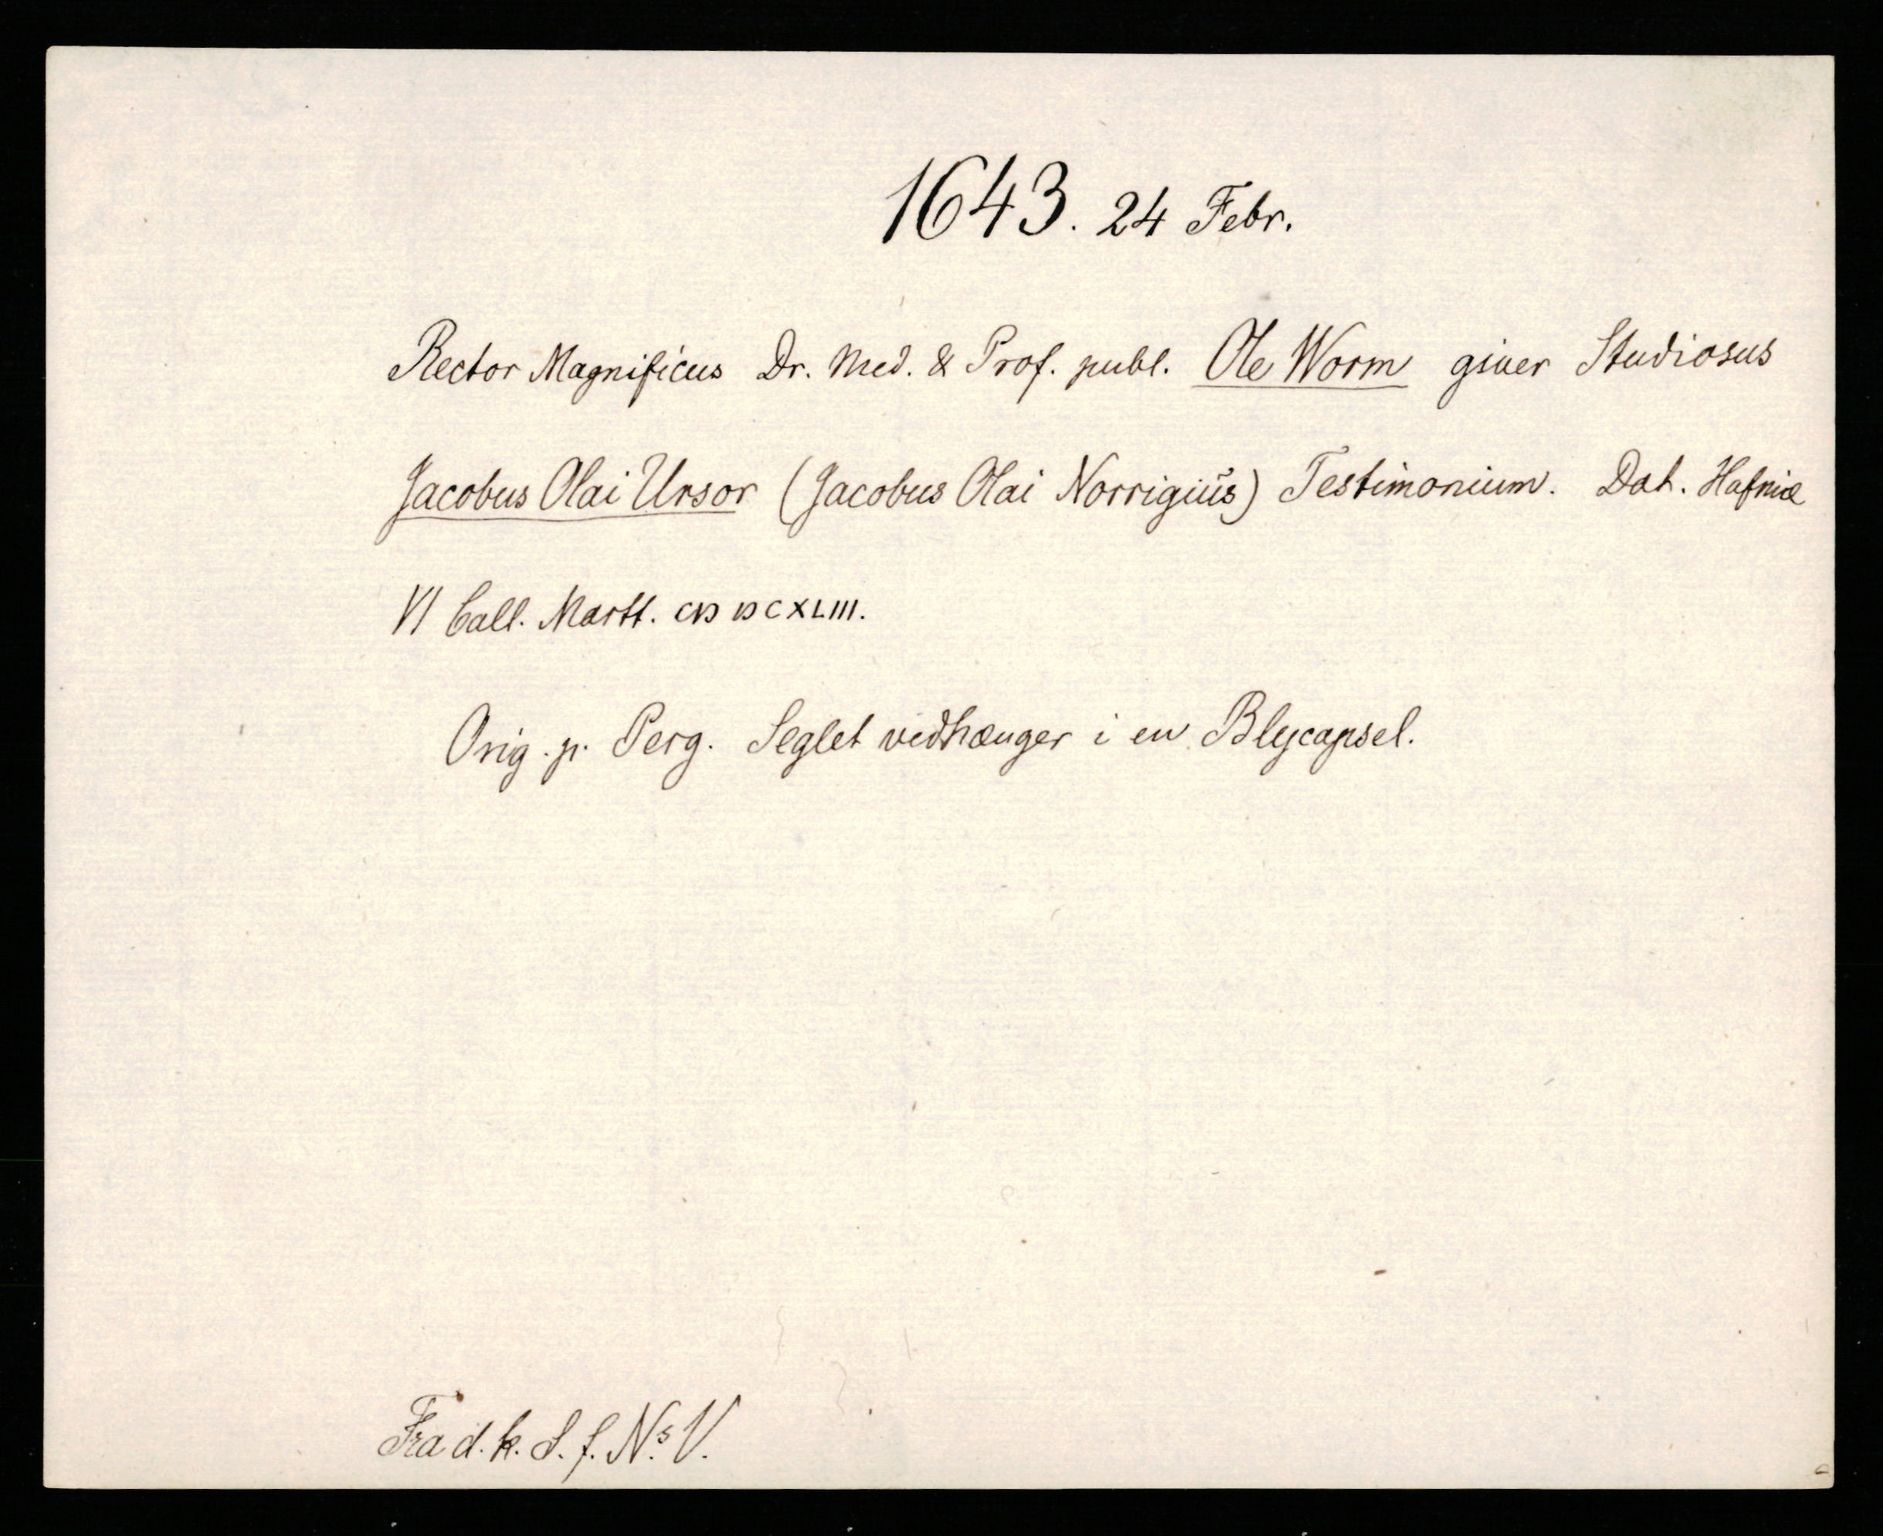 1643. 24 Febr.
Rector Magnificus Dr. Med. & Prof. publ. Ole Worm giver Studiosus
Jacobus Olai Ursor (Jacobus Olai Norrigiũs) Testimonium. Dat. Hafniæ
VI Call. Martt. CIↃ IↃCXLIII.
Orig. p. Perg. Seglet vedhænger i en Blycapsel.
Fra d. k. S. f. N.s V.